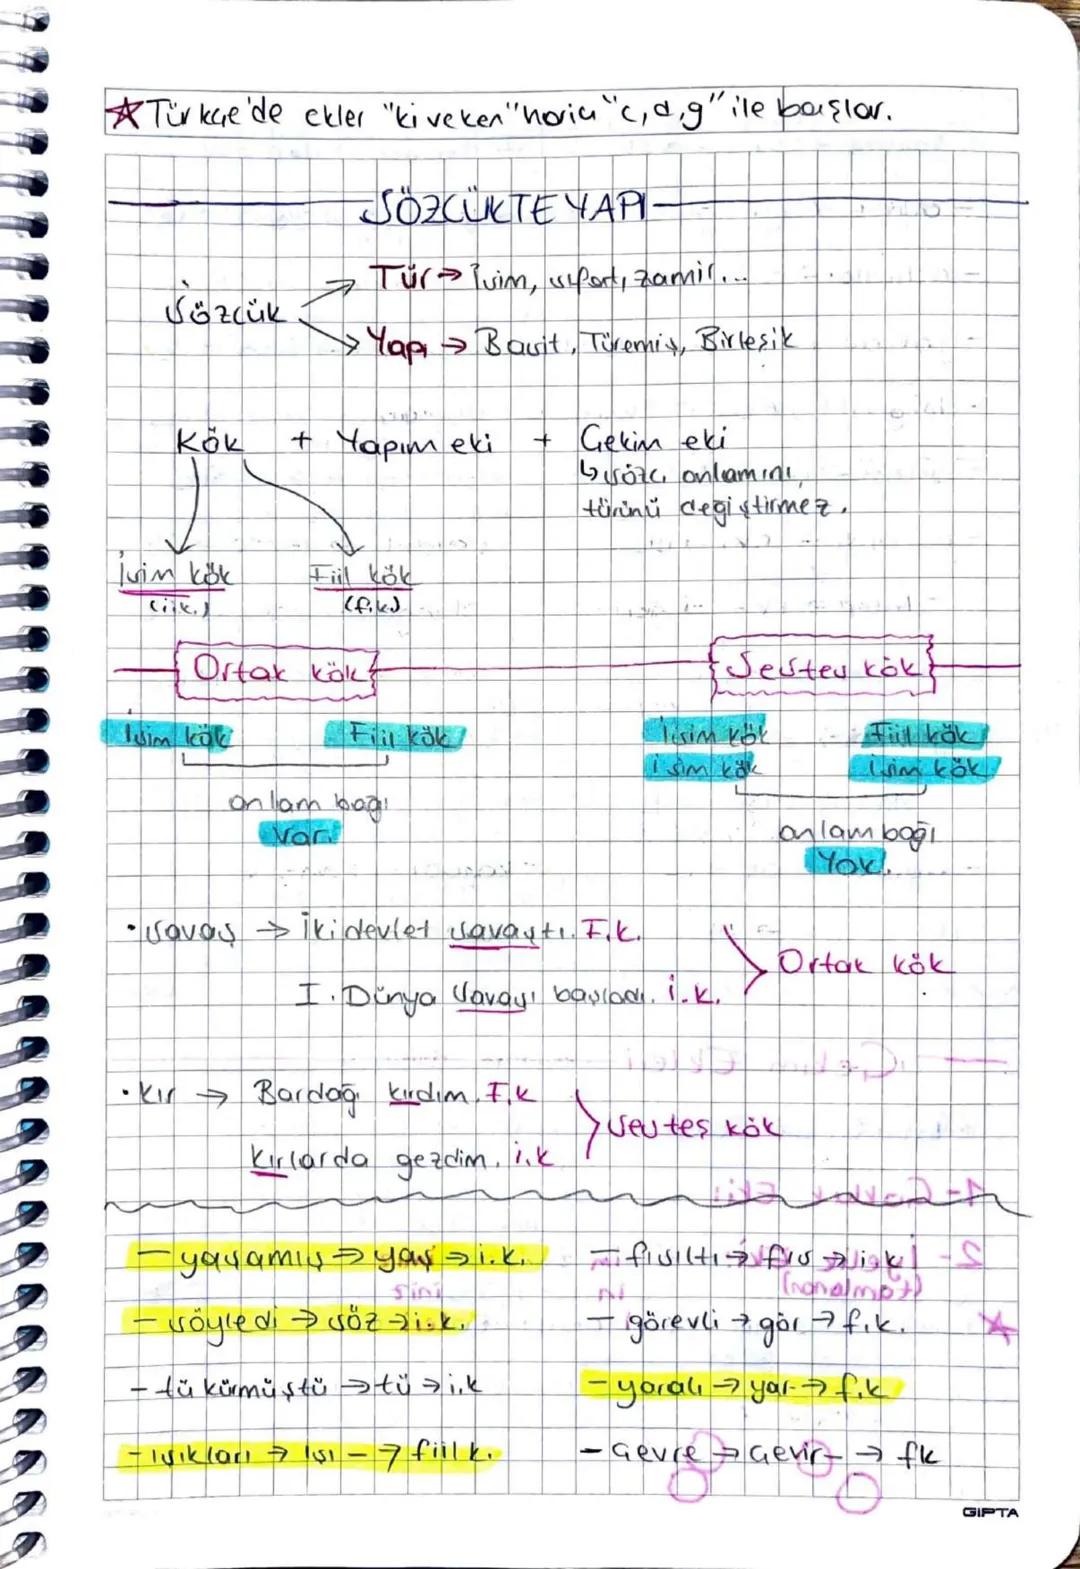 ☆ Türkçe'de ekler "ki ve ken" hariç "c, d, g" ile başlar.
SÖZCÜKTE YAPI
Sözcük
Tür → İsim, sıfat, zamir...
Yapı → Basit, Türemiş, Birleşik
Kök + Yapım eki + Çekim eki
↳ sözc. anlamını,
türünü değiştirmez.
İsim kök Fiil kök
(i.k.) (f.k)
Ortak kök Sesteş kök
İsim kök Fiil kök İsim kök Fiil kök
isim kök isim kök
anlam bağı
Var. anlam bağı
Yok.
• savaş → İki devlet savaştı. F.k.
I. Dünya Savaşı başladı. i.k.
Ortak kök
• kır → Bardağı kırdım. F.k
Kırlarda gezdim. i.k
Sesteş kök
- yaşamış → yaş → i.k. - fısıltı → fıs → i.k
- söyledi → söz → i.k. - görevli → gör → f.k.
- tükürmüştü → tü → i.k - yaralı → yar- → f.k
- ışıkları → ışı- → fiil k. - çevre → çevir- → fk
GIPTA